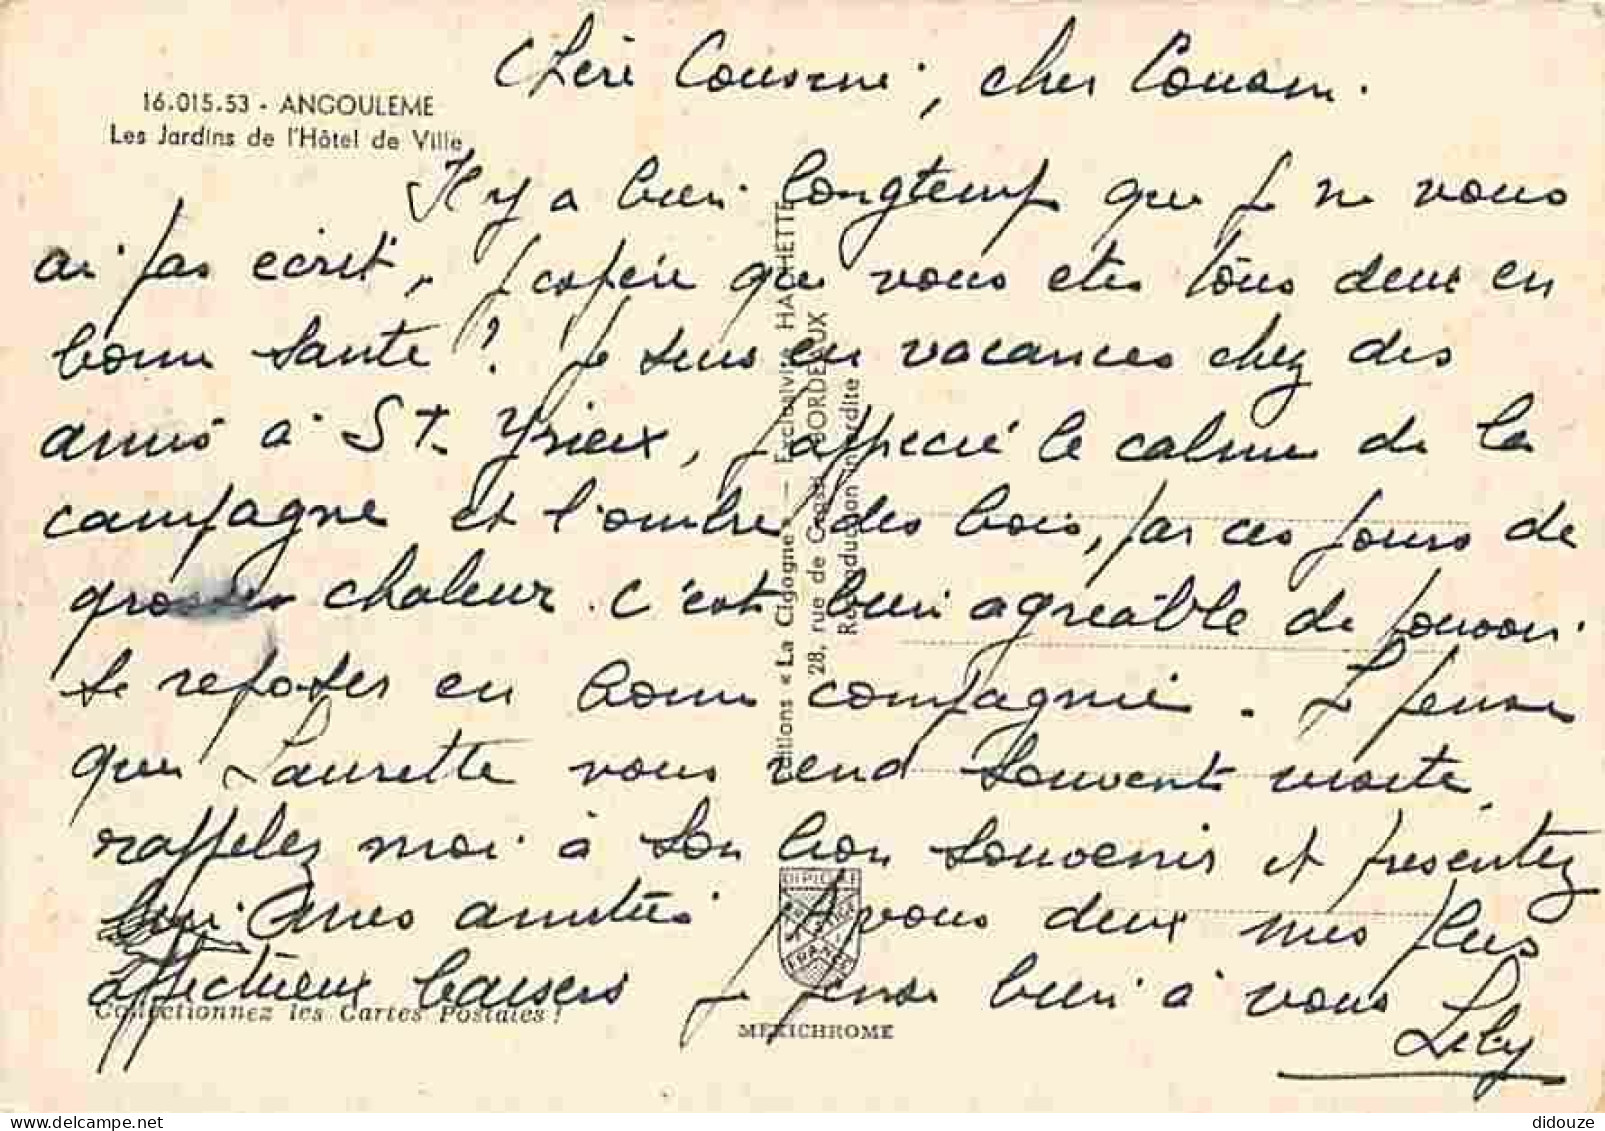 Chère Cousine, cher Cousin.
16.015.53 - ANGOULEME
Les Jardins de l'Hôtel de Ville
Il y a bien longtemps que je ne vous
ai pas écrit, j'espère que vous etes tous deux en
bonne santé ! Je suis en vacances chez des
amis à St. Yrieux, j'apprecie le calme de la
campagne et l'ombre des bois, par ces jours de
grosses chaleur. c'est bien agréable de pouvoir
se reposer en bonne compagnie. Je pense
que Laurette vous rend souvent visite,
rappelez moi à son bon souvenir et présentez
lui mes amitiés. A vous deux mes plus
affectueux baisers je pense bien à vous
Lily
Editions « La Cigogne » — Exclusivité HACHETTE
28, rue de BORDEAUX
Reproduction interdite
FRANCE
Collectionnez les Cartes Postales !
MEXICHROME
didouze